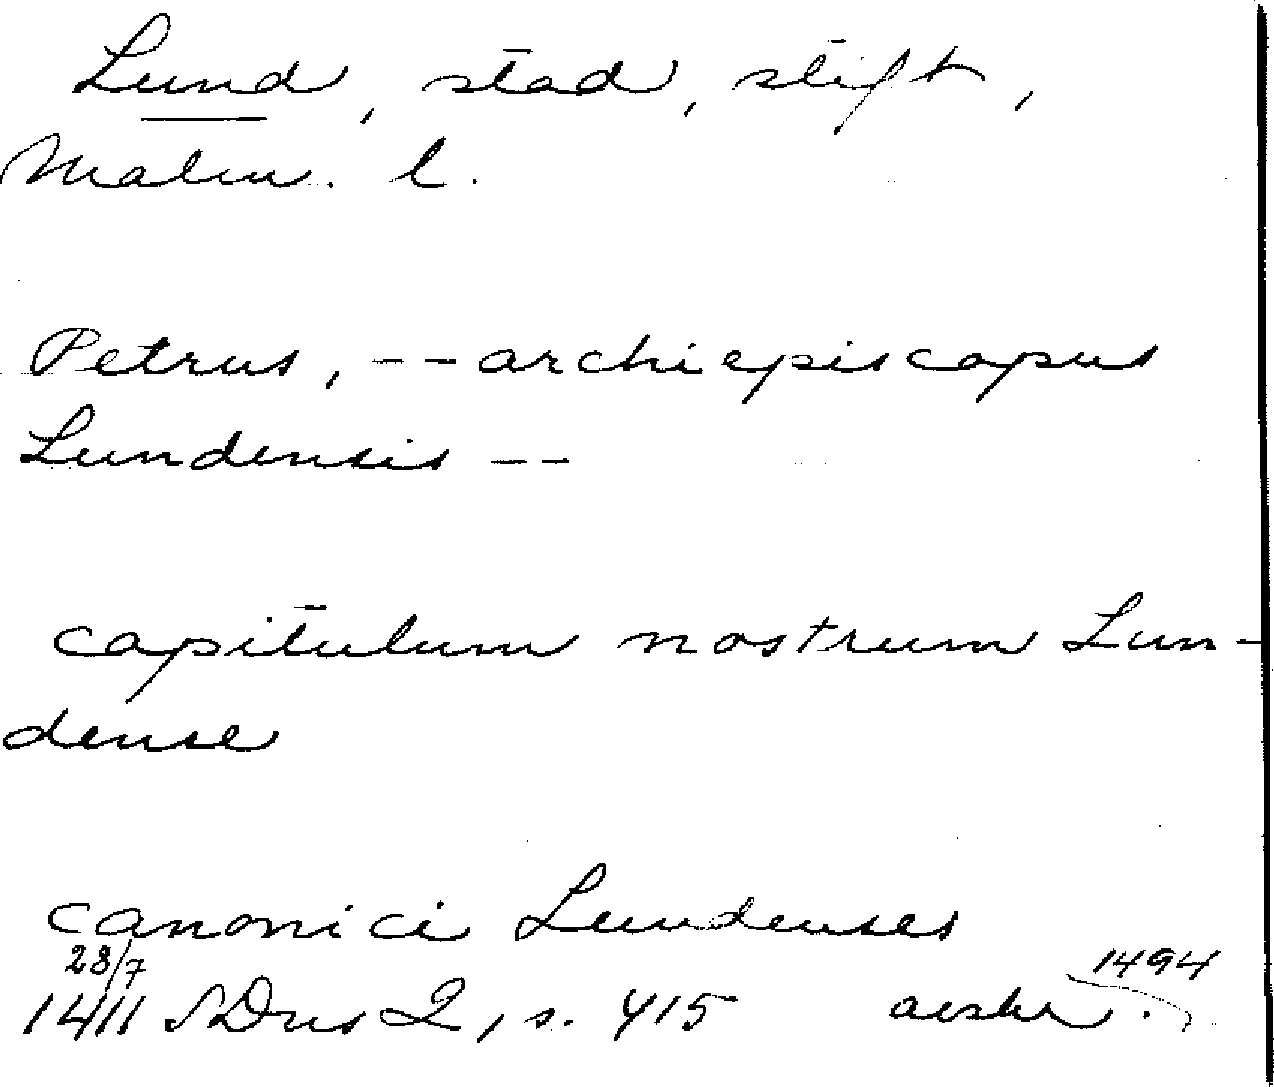 Lund, stad, stift,
Malm. l.
Petrus, -- archiepiscopus
Lundensis --
capitulum nostrum Lun-
dense
canonici Lundenses
28/7
1494
1411 SDns 2, s. 415 avskr.